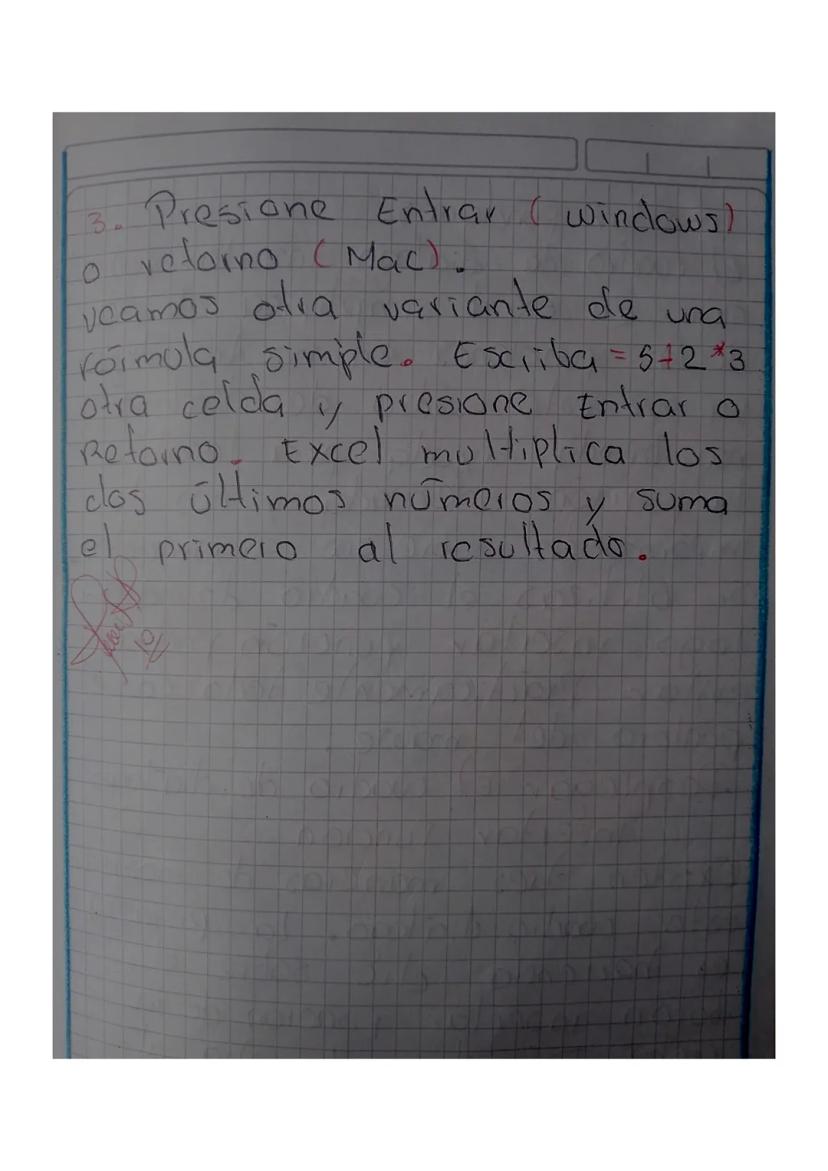 3. Presione Entrar (windows)
o retorno (Mac).
veamos otra variante de una
fórmula simple. Escriba =5+2*3
otra celda y presione Entrar o
Retorno. Excel multiplica los
dos últimos números y suma
el primero al resultado.
10